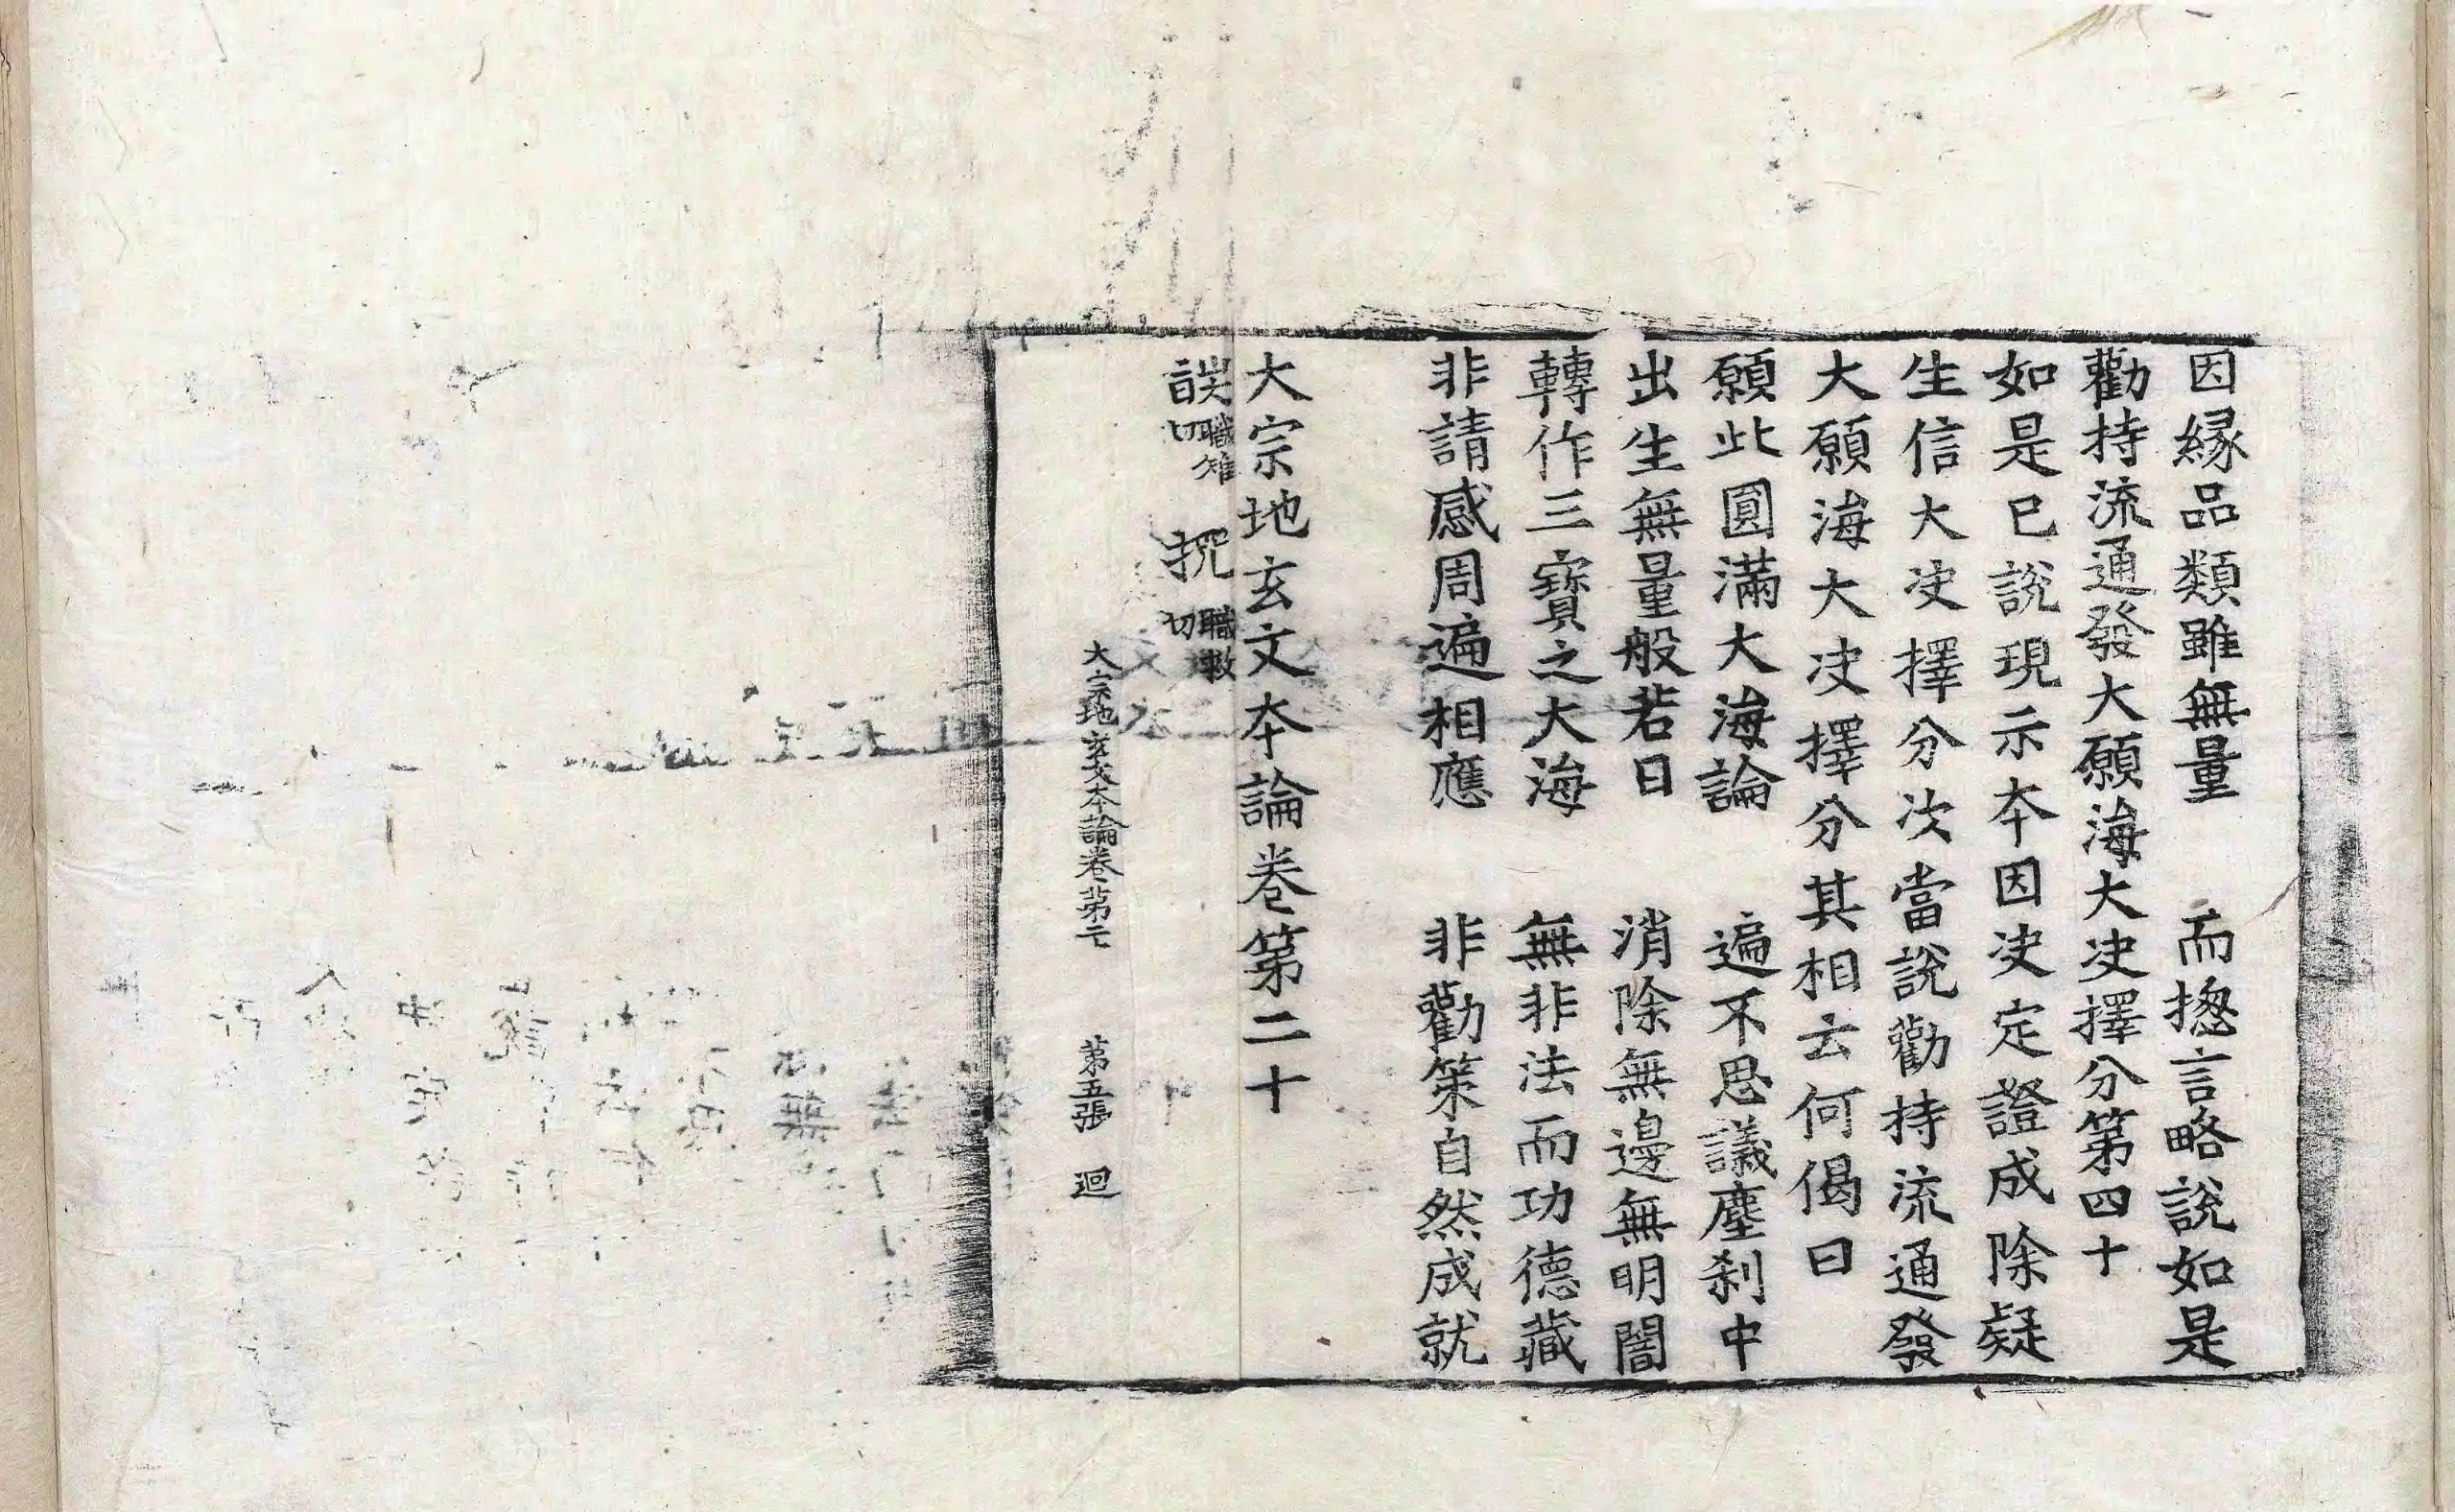 因縁品類雖無量　而揔言略說如是
勸持流通發大願海大决擇分第四十
如是已說現示本因决定證成除疑
生信大决擇分次當說勸持流通發
大願海大决擇分其相云何偈曰
願此圓滿大海論　遍不思議塵刹中
出生無量般若日　消除無邊無明闇
轉作三寶之大海　無非法而功德藏
非請感周遍相應　非勸策自然成就
大宗地玄文本論卷第二十
職雉切　職救切
大宗地玄文本論卷第二十　第五張　迴